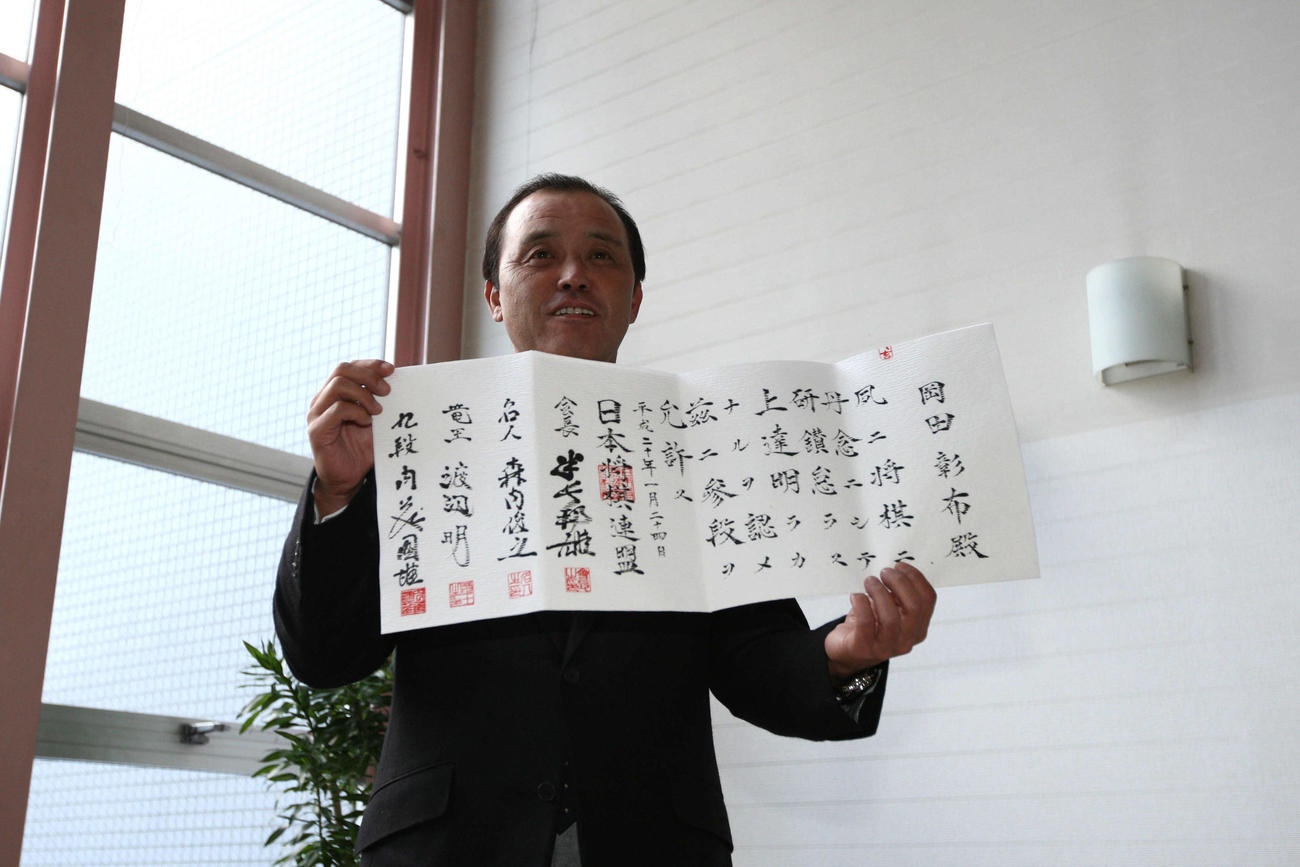 岡田彰布殿
夙ニ将棋ニ
丹念ニシテ
研鑽怠ラス
上達明ラカ
ナルヲ認メ
茲ニ參段ヲ
允許ス
平成二十年一月二十四日
日本将棋連盟
会長 米長邦雄
名人 森内俊之
竜王 渡辺明
九段 内藤國雄